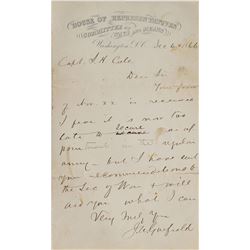 HOUSE OF REPRESENTATIVES
COMMITTEE OF WAYS AND MEANS
Washington, D.C. Dec 6 1866
Capt. S. H. Cole
Dear Sir
Your favor
of Nov. xx is received
I fear it is now too
late to secure
an ap
pointment in the regular
army - but I have sent
your recommendations to
the Sec of War & will
aid you what I can
Very truly yrs
J A Garfield